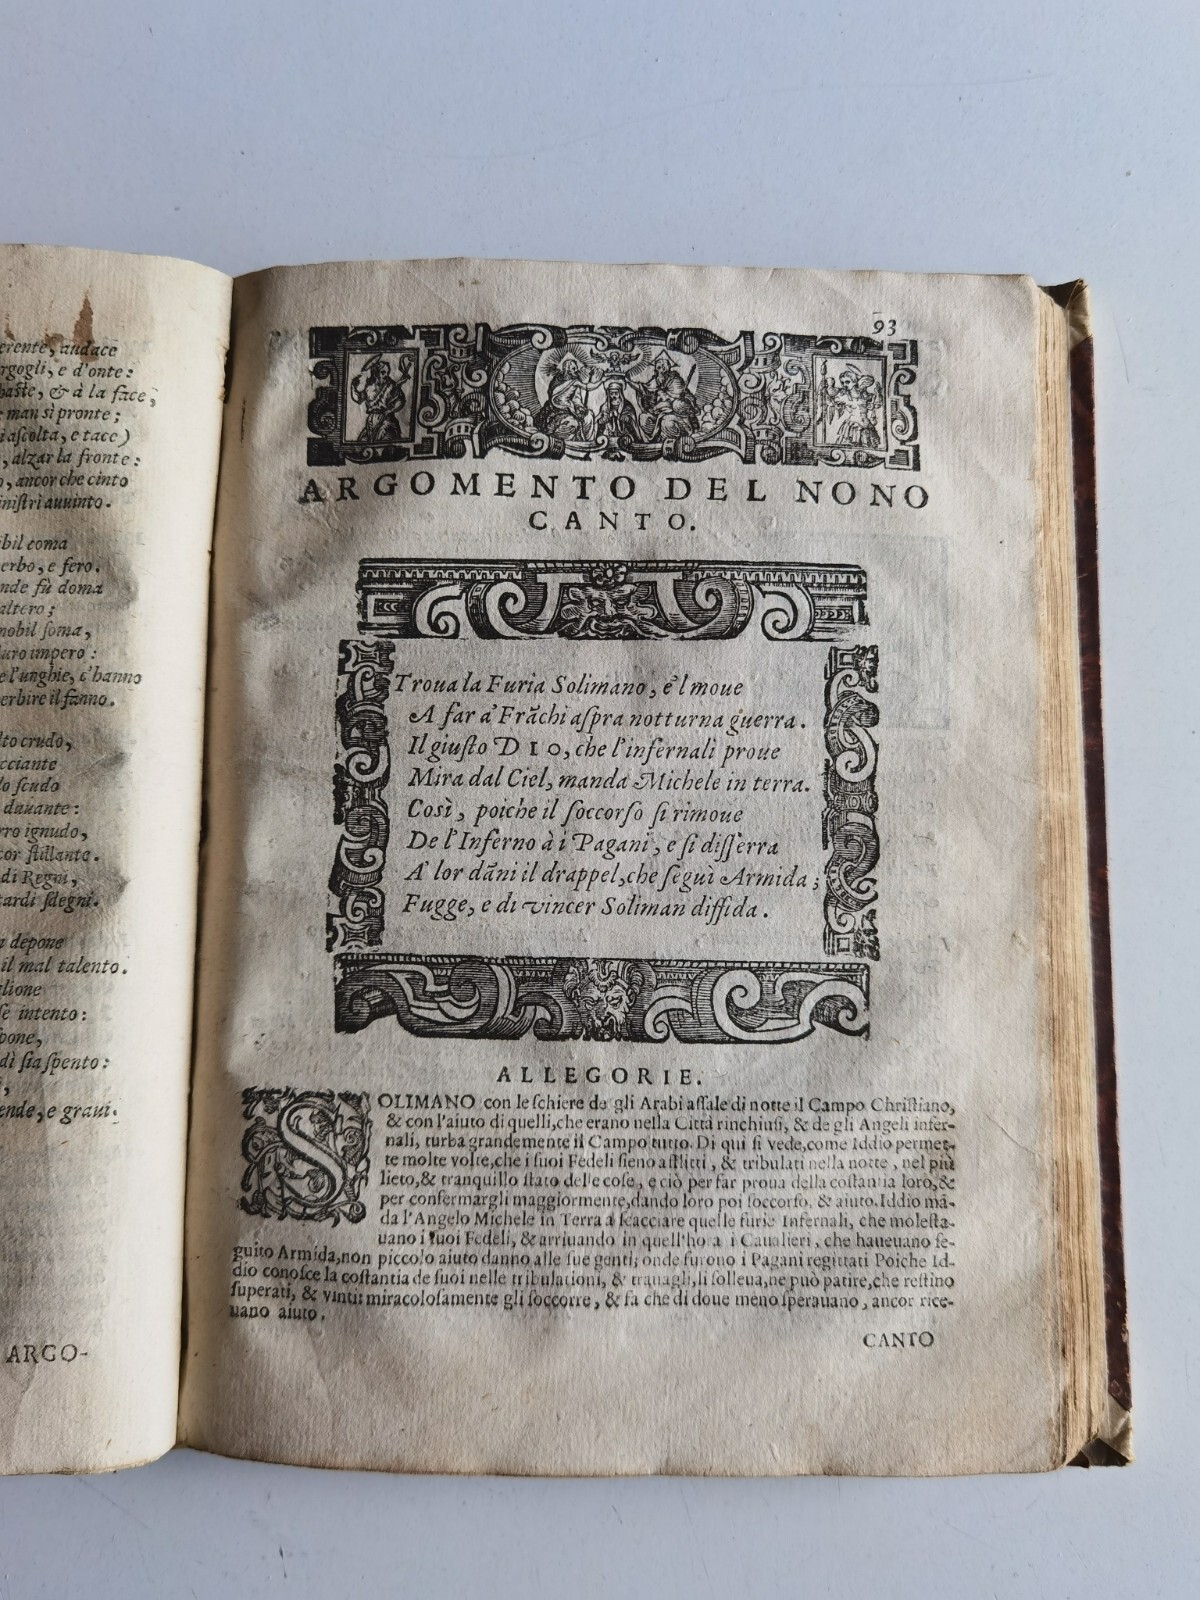 andace
rgogli, e d'onte:
haste, & à la face,
man sì pronte;
ascolta, e tace)
, alzar la fronte:
, ancor che cinto
ministri auuinto.
coma
erbo, e fero.
nde fù doma
altero;
nobil soma,
duro impero:
e l'unghie, c'hanno
erbire il fanno.
lto crudo,
cciante
lo scudo
dauante:
rro ignudo,
cor stillante.
di Regni,
tardi sdegni.
depone
il mal talento.
glione
intento:
pone,
dì sia spento:
ende, e graui.
ARGO-
93
ARGOMENTO DEL NONO
CANTO.
Troua la Furia Solimano, e'l moue
A far a' Frãchi aspra notturna guerra.
Il giusto DIO, che l'infernali proue
Mira dal Ciel, manda Michele in terra.
Così, poiche il soccorso si rimoue
De l'Inferno à i Pagani, e si disserra
A' lor dãni il drappel, che seguì Armida;
Fugge, e di vincer Soliman diffida.
ALLEGORIE.
SOLIMANO con le schiere de gli Arabi assale di notte il Campo Christiano,
& con l'aiuto di quelli, che erano nella Città rinchiusi, & de gli Angeli infer-
nali, turba grandemente il Campo tutto. Di qui si vede, come Iddio permet-
te molte volte, che i suoi Fedeli sieno afflitti, & tribulati nella notte, nel più
lieto, & tranquillo stato delle cose, e ciò per far proua della costantia loro, &
per confermargli maggiormente, dando loro poi soccorso, & aiuto. Iddio mã-
da l'Angelo Michele in Terra à scacciare quelle furie Infernali, che molesta-
uano i suoi Fedeli, & arriuando in quell'hora i Caualieri, che haueuano se-
guito Armida, non piccolo aiuto danno alle sue genti; onde furono i Pagani regittati Poiche Id-
dio conosce la costantia de suoi nelle tribulationi, & trauagli, li solleua, ne può patire, che restino
superati, & vinti: miracolosamente gli soccorre, & fa che di doue meno sperauano, ancor rice-
uano aiuto.
CANTO